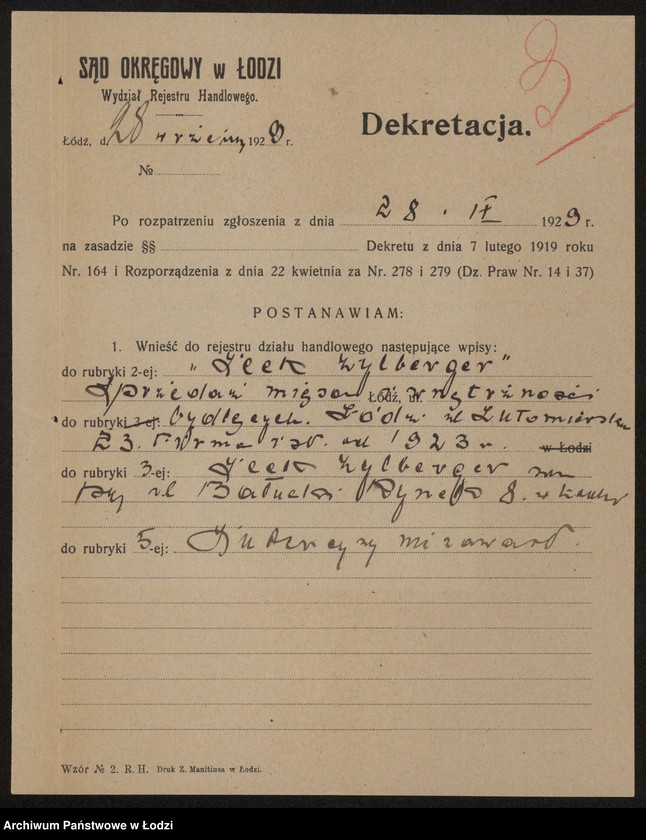 SĄD OKRĘGOWY w ŁODZI
Wydział Rejestru Handlowego.
Dekretacja.
Łódź, d. 28 września 1929 r.
№
Po rozpatrzeniu zgłoszenia z dnia 28. IX 1929 r.
na zasadzie §§ Dekretu z dnia 7 lutego 1919 roku
Nr. 164 i Rozporządzenia z dnia 22 kwietnia za Nr. 278 i 279 (Dz. Praw Nr. 14 i 37)
POSTANAWIAM:
1. Wnieść do rejestru działu handlowego następujące wpisy:
do rubryki 2-ej: „Icek Zylberger"
Sprzedaż mięsa i wnętrzności Łódź, ul.
do rubryki 3-ej: bydlęcych. Łódź ul Lutomierska
23. Firma istn. od 1923 r. w Łodzi
do rubryki 3-ej: Icek Zylberger zam
przy ul Bałucki Rynek 8. w Łodzi
do rubryki 5-ej: Intercyzy nie zawarł.
Wzór № 2. R. H. Druk Z. Manitiusa w Łodzi.
Archiwum Państwowe w Łodzi